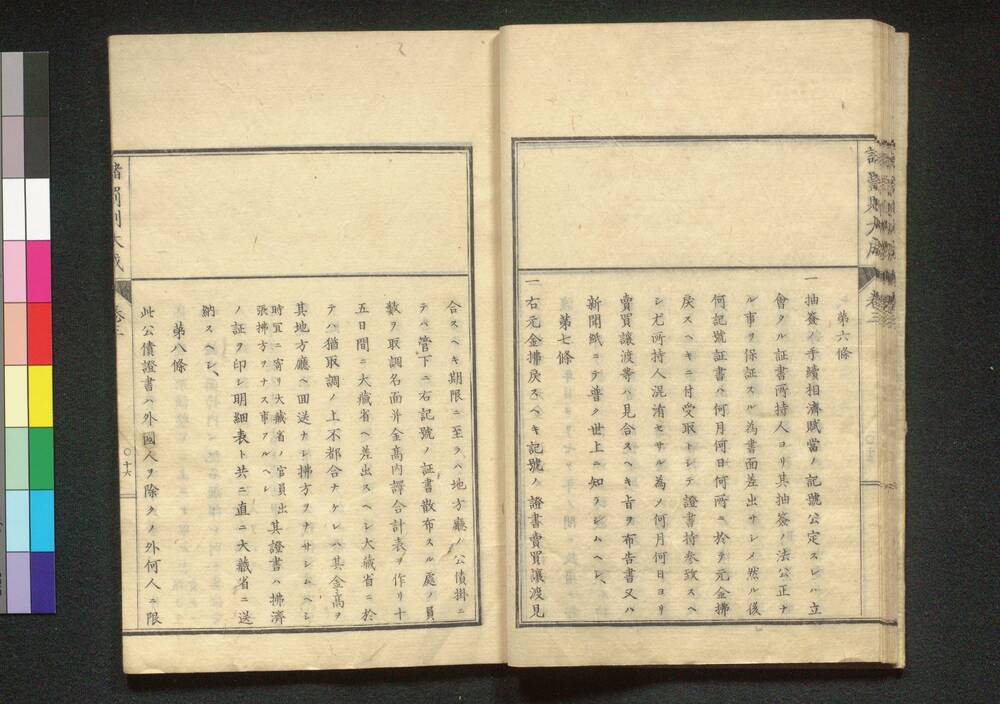 第六條
一 抽簽ノ手續相濟賦當ノ記號公定スレハ立
會タル証書所持人ヨリ其抽簽ノ法公正ナ
ル事ヲ保証スル為書面差出サシメ然ル後
何記號証書ハ何月何日何所ニ於テ元金拂
戻スヘキニ付受取トシテ證書持参致スヘ
シ尤所持人混淆セサル為メ何月何日ヨリ
賣買讓渡等ハ見合スヘキ旨ヲ布告書又ハ
新聞紙ニテ普ク世上ニ知ラシムヘシ、
第七條
一 右元金拂戻スヘキ記號ノ證書賣買讓渡見
合スヘキ期限ニ至ラハ地方廳ノ公債掛ニ
テハ管下ニ右記號ノ証書散布スル處ノ員
數ヲ取調名面并金高内譯合計表ヲ作リ十
五日間ニ大藏省ヘ差出スヘシ大藏省ニ於
テハ猶取調ノ上不都合ナケレハ其金高ヲ
其地方廳ヘ回送ナシ拂方ヲナサシムヘシ
時冝ニ寄リ大藏省ノ官員出
張拂方ヲナス事アルヘシ
其證書ハ拂濟
ノ証ヲ印シ明細表ト共ニ直ニ大藏省ニ送
納スヘシ、
第八條
此公債證書ハ外國人ヲ除クノ外何人ニ限
諸罰則大成
卷三
〇十六